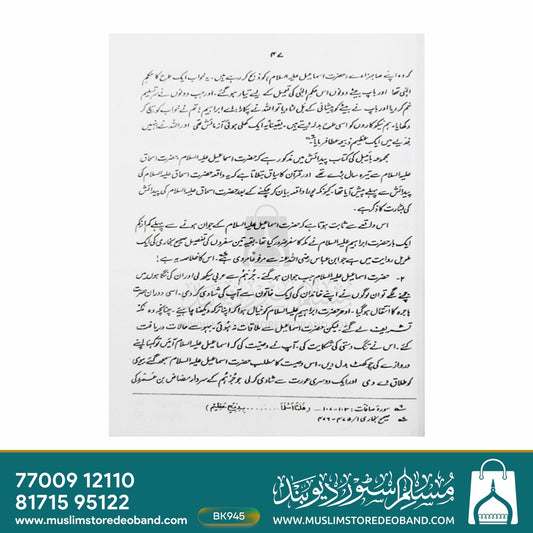 ۴۷
کہ وہ اپنے صاحبزادے (حضرت اسماعیل علیہ السلام) کو ذبح کر رہے ہیں۔ یہ خواب ایک طرح کا حکم
الٰہی تھا اور باپ بیٹے دونوں اس حکم الٰہی کی تعمیل کے لیے تیار ہو گئے۔ اور جب دونوں نے سر تسلیم
خم کر دیا اور باپ نے بیٹے کو پیشانی کے بَل لٹا دیا تو اللہ نے پکارا: اے ابراہیم! تم نے خواب کو سچ کر
دکھایا۔ ہم نیکو کاروں کو اسی طرح بدلہ دیتے ہیں۔ یقیناً یہ ایک کھلی ہوئی آزمائش تھی اور اللہ نے انہیں
فدیے میں ایک عظیم ذبیحہ عطا فرمایا
مجموعہ بائبل کی کتاب پیدائش میں مذکور ہے کہ حضرت اسماعیل علیہ السلام، حضرت اسحاق
علیہ السلام سے تیرہ سال بڑے تھے اور قرآن کا سیاق بتلاتا ہے کہ یہ واقعہ حضرت اسحاق علیہ السلام کی
پیدائش سے پہلے پیش آیا تھا، کیونکہ پورا واقعہ بیان کر چکنے کے بعد حضرت اسحاق علیہ السلام کی پیدائش
کی بشارت کا ذکر ہے۔
اس واقعے سے ثابت ہوتا ہے کہ حضرت اسماعیل علیہ السلام کے جوان ہونے سے پہلے کم از کم
ایک بار حضرت ابراہیم علیہ السلام نے مکہ کا سفر ضرور کیا تھا۔ بقیہ تین سفروں کی تفصیل صحیح بخاری کی ایک
طویل روایت میں ہے جو ابن عباس رضی اللہ عنہ سے مرفوعاً مروی ہے۔ اس کا خلاصہ یہ ہے:
۲۔ حضرت اسماعیل علیہ السلام جب جوان ہو گئے۔ جُرہم سے عربی سیکھ لی اور ان کی نگاہوں میں
جچنے لگے تو ان لوگوں نے اپنے خاندان کی ایک خاتون سے آپ کی شادی کر دی۔ اسی دوران حضرت
ہاجرہ کا انتقال ہو گیا۔ ادھر حضرت ابراہیم علیہ السلام کو خیال ہوا کہ اپنا ترکہ دیکھنا چاہیے۔ چنانچہ وہ مکہ
تشریف لے گئے۔ لیکن حضرت اسماعیل سے ملاقات نہ ہوئی۔ بہو سے حالات دریافت
کئے۔ اس نے تنگ دستی کی شکایت کی۔ آپ نے وصیت کی کہ اسماعیل آئیں تو کہنا اپنے
دروازے کی چوکھٹ بدل دیں۔ اس وصیت کا مطلب حضرت اسماعیل علیہ السلام سمجھ گئے، بیوی
کو طلاق دے دی اور ایک دوسری عورت سے شادی کر لی جو جُرہم کے سردار مضاض بن عمرو کی
سورہ صافات: ۱۰۳-۱۰۷ (فَلَمَّا اَسْلَمَا ........ بِذِبْحٍ عَظِیْمٍ)
صحیح بخاری ۱/۴۷۵-۴۷۶
77009 12110
81715 95122
www.muslimstoredeoband.com
BK945
مسلم سٹور دیوبند
WWW.MUSLIMSTOREDEOBAND.COM